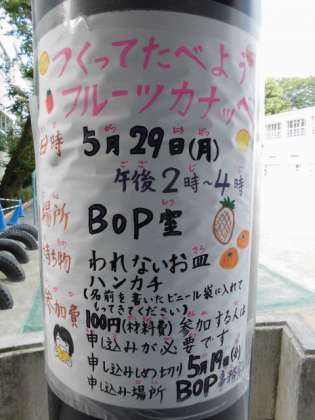 つくってたべよう
フルーツカナッペ
日時 5月29日(月)
午後2時~4時
場所 BOP室
持ち物 われないお皿
ハンカチ
(名前を書いたビニール袋に入れて
もってきてください)
参加費 100円(材料費)参加する人は
申し込みが必要です
申し込みしめ切り 5月19日
申し込み場所 BOP